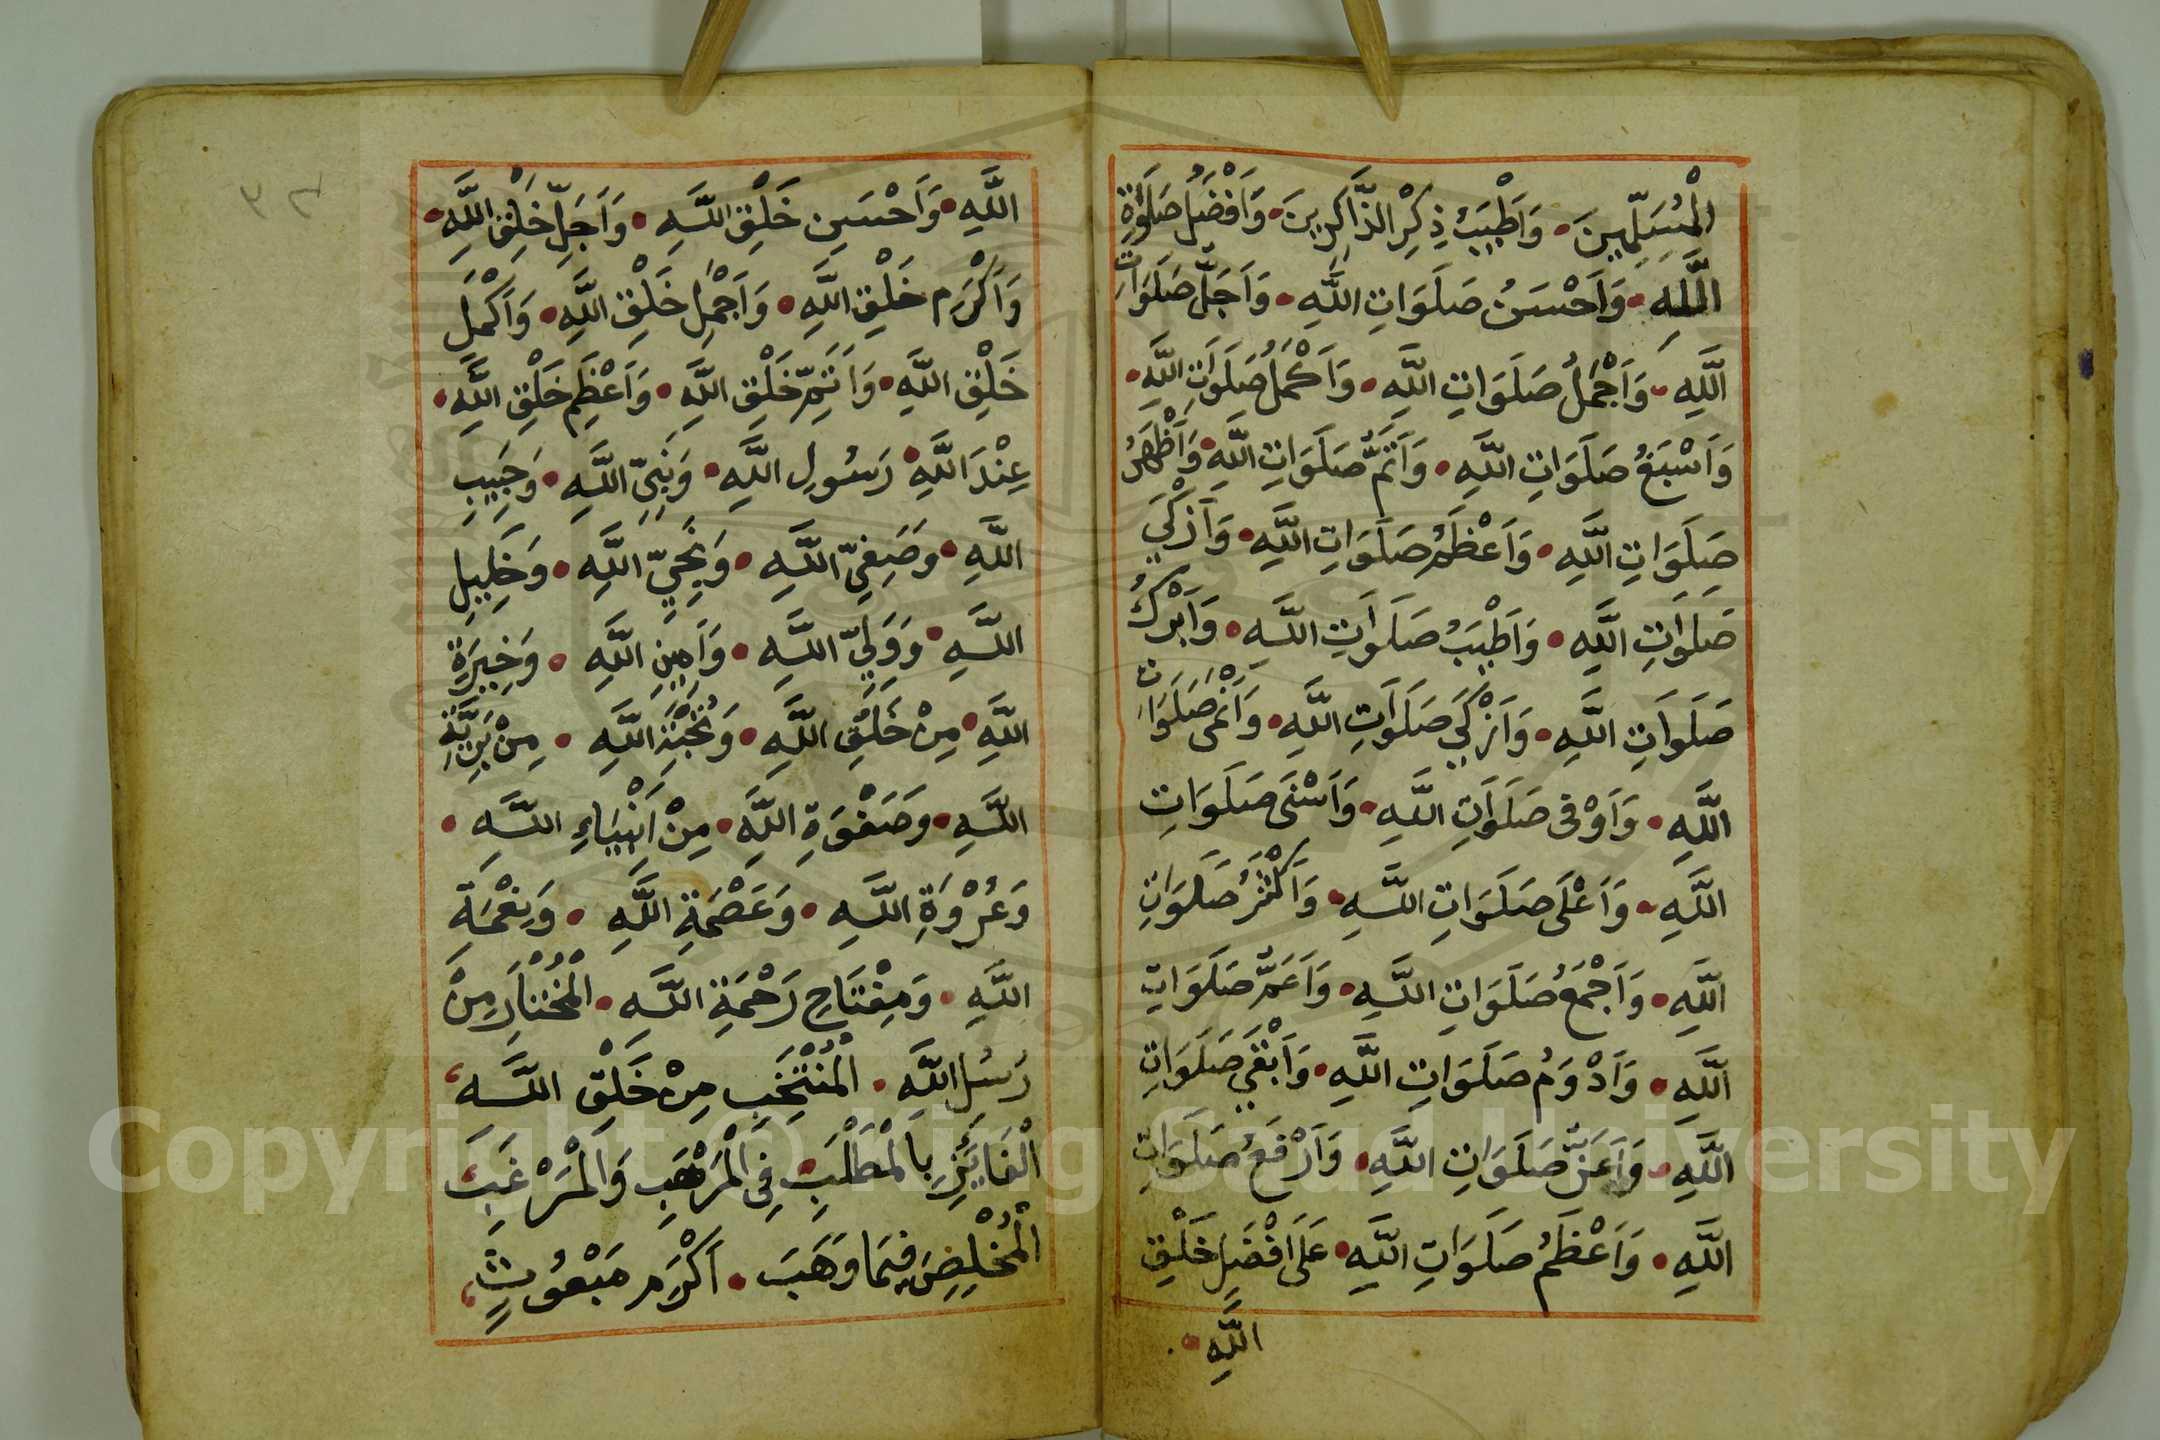 الْمُسَلِّمِينَ • وَاَطْيَبُ ذِكْرِ الذَّاكِرِينَ • وَاَفْضَلُ صَلَوٰةِ
اللَّهِ • وَاَحْسَنُ صَلَوَاتِ اللَّهِ • وَاَجَلُّ صَلَوَاتِ
اللَّهِ • وَاَجْمَلُ صَلَوَاتِ اللَّهِ • وَاَكْمَلُ صَلَوَاتِ اللَّهِ •
وَاَسْبَغُ صَلَوَاتِ اللَّهِ • وَاَتَمُّ صَلَوَاتِ اللَّهِ • وَاَظْهَرُ
صَلَوَاتِ اللَّهِ • وَاَعْظَمُ صَلَوَاتِ اللَّهِ • وَاَذْكَي
صَلَوَاتِ اللَّهِ • وَاَطْيَبُ صَلَوَاتِ اللَّهِ • وَاَبْرَكُ
صَلَوَاتِ اللَّهِ • وَاَزْكَي صَلَوَاتِ اللَّهِ • وَاَنْمَى صَلَوَاتِ
اللَّهِ • وَاَوْفَى صَلَوَاتِ اللَّهِ • وَاَسْنَى صَلَوَاتِ
اللَّهِ • وَاَعْلَى صَلَوَاتِ اللَّهِ • وَاَكْثَرُ صَلَوَاتِ
اللَّهِ • وَاَجْمَعُ صَلَوَاتِ اللَّهِ • وَاَعَمُّ صَلَوَاتِ
اللَّهِ • وَاَدْوَمُ صَلَوَاتِ اللَّهِ • وَاَبْقَي صَلَوَاتِ
اللَّهِ • وَاَعَزُّ صَلَوَاتِ اللَّهِ • وَاَرْفَعُ صَلَوَاتِ
اللَّهِ • وَاَعْظَمُ صَلَوَاتِ اللَّهِ • عَلَى اَفْضَلِ خَلْقِ
اللَّهِ •
٣٢
اللَّهِ • وَاَحْسَنِ خَلْقِ اللَّهِ • وَاَجَلِّ خَلْقِ اللَّهِ •
وَاَكْرَمِ خَلْقِ اللَّهِ • وَاَجْمَلِ خَلْقِ اللَّهِ • وَاَكْمَلِ
خَلْقِ اللَّهِ • وَاَتَمِّ خَلْقِ اللَّهِ • وَاَعْظَمِ خَلْقِ اللَّهِ •
عِنْدَ اللَّهِ • رَسُولِ اللَّهِ • وَنَبِيِّ اللَّهِ • وَحَبِيبِ
اللَّهِ • وَصَفِيِّ اللَّهِ • وَنَجِيِّ اللَّهِ • وَخَلِيلِ
اللَّهِ • وَوَلِيِّ اللَّهِ • وَاَمِينِ اللَّهِ • وَخِيرَةِ
اللَّهِ • مِنْ خَلْقِ اللَّهِ • وَنُخْبَةِ اللَّهِ • مِنْ بَرِيَّةِ
اللَّهِ • وَصَفْوَةِ اللَّهِ • مِنْ اَنْبِيَاءِ اللَّهِ •
وَعُرْوَةِ اللَّهِ • وَعَصْمَةِ اللَّهِ • وَنِعْمَةِ
اللَّهِ • وَمِفْتَاحِ رَحْمَةِ اللَّهِ • الْمُخْتَارِ مِنْ
رَسُلِ اللَّهِ • الْمُنْتَخَبِ مِنْ خَلْقِ اللَّهِ ،
الْفَايَزِ بِالْمَطْلَبِ فِي الْمَرْهَبِ وَالْمَرْغَبِ ،
الْمُخْلِصِ فِيمَا وَهَبَ • اَكْرَمِ مَبْعُوثٍ ،
Copyright © King Saud University